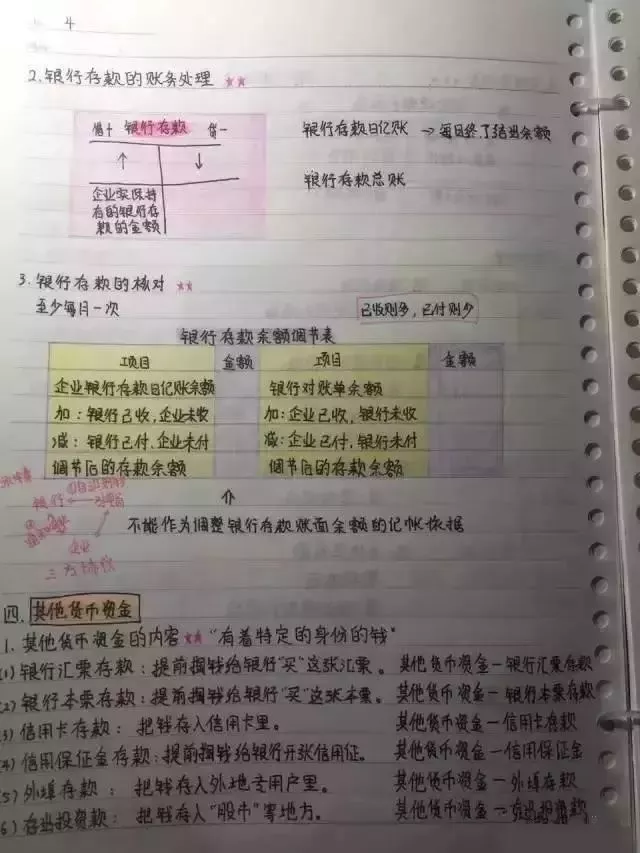 4
2.银行存款的账务处理 ☆☆
借+ 银行存款 贷-
↑ ↓
企业实保持
有的银行存
款的金额
银行存款日记账 → 每日终了结出余额
银行存款总账
3.银行存款的核对 ☆☆
至少每月一次
已收则多，已付则少
银行存款余额调节表
项目 金额 项目 金额
企业银行存款日记账余额 银行对账单余额
加：银行已收，企业未收 加：企业已收，银行未收
减：银行已付，企业未付 减：企业已付，银行未付
调节后的存款余额 调节后的存款余额
银行
企业
不能作为调整银行存款账面余额的记帐依据
四.其他货币资金
1.其他货币资金的内容 ☆☆ "有着特定的身份的钱"
(1)银行汇票存款：提前搁钱给银行"买"这张汇票。 其他货币资金—银行汇票存款
(2)银行本票存款：提前搁钱给银行"买"这张本票。 其他货币资金—银行本票存款
(3)信用卡存款：把钱存入信用卡里。 其他货币资金—信用卡存款
(4)信用保证金存款：提前搁钱给银行开张信用证。 其他货币资金—信用保证金
(5)外埠存款：把钱存入外地专用户里。 其他货币资金—外埠存款
(6)存出投资款：把钱存入"股市"等地方。 其他货币资金—存出投资款